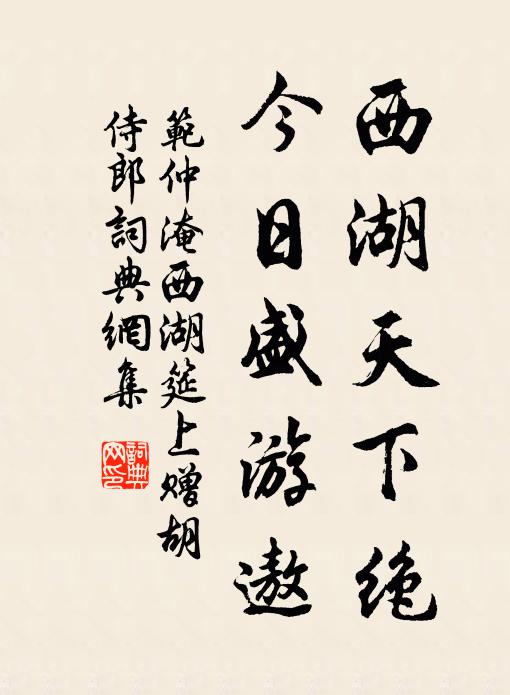 西湖天下绝
今日盛游遨
範仲淹西湖筵上赠胡
侍郎詞典網集
詞典
网印